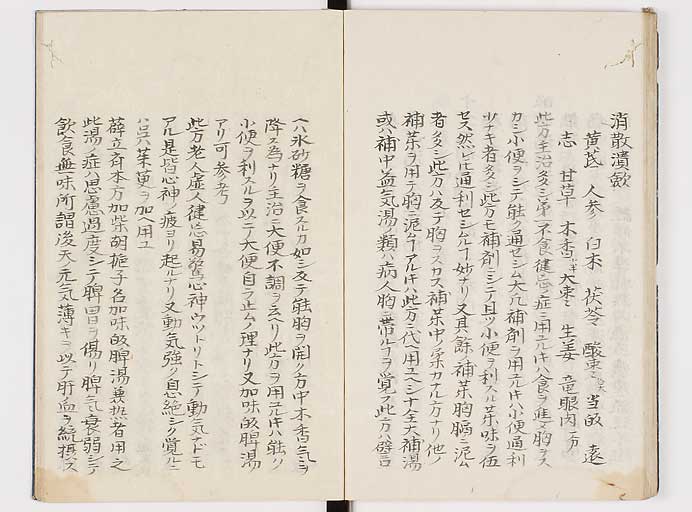 消散潰飲
黄芪 人参 白朮 茯苓 酸枣 当皈 遠
志 甘草 木香 大枣 生姜 竜眼肉
此方主治多シ第一不食健忘ノ症ニ用元キハ食ヲ進メ胸ヲス
カシ小便ヲシテ能ク通セシム大凢補剤ヲ用元キハ小便通利
少ナキ者多シ此方モ補剤ニシテ且ツ小便ヲ利スル茱味ヲ伍
セス然ルニ通利セシムルヿ妙ナリ又其餘ノ補茱胸膈ニ泥ム
者多シ此方ハ反テ胸ヲスカス補茱中ノ柔カナル方ナリ他ノ
補茱ヲ用テ胸ニ泥ケアルキハ此方ニ代ヘ用ユヘシ十全大補湯
或ハ補中益气湯ノ類ハ病人胸ニ帯ルヿヲ覚フ此方ハ譬ヘ
ハ氷砂糖ヲ食スルカ如シ反テ能胸ヲ開ク方中木香气ヲ
降ス為ナリ主治ニ大便不調ヲ云リ此方ヲ用元キハ能ク
小便ヲ利スルヲ以テ大便自ラ止ムノ理ナリ又加味皈脾湯
アリ可参考
此方老人虚人健忘易驚心神ウツトリトシテ動气ナドモ
アル是皆心神ノ疲ヨリ起ルナリ又動气強ク息絶シク覚ルニ
ハ呉茱萸ヲ加ヘ用ユ
薛立斉本方加柴胡梔子名加味皈脾湯兼热者用之
此湯ノ症ハ思慮過度シテ脾胃ヲ傷リ脾气衰弱シテ
飲食無味所謂後天ノ元气薄キヲ以テ肝血ヲ統摂ス